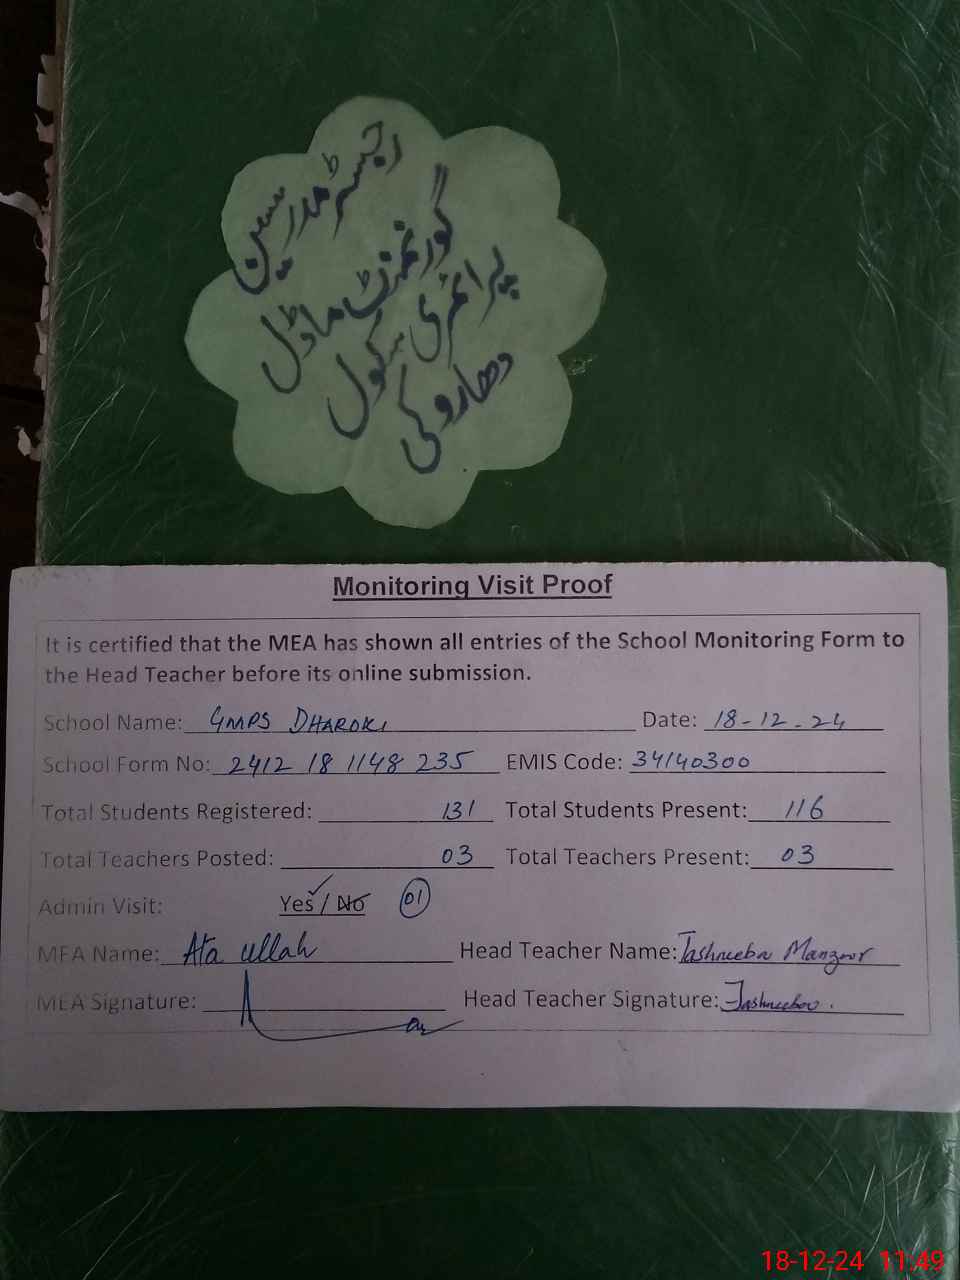 رجسٹر مدرسین
گورنمنٹ ماڈل
پرائمری سکول
دھاروکی
Monitoring Visit Proof
It is certified that the MEA has shown all entries of the School Monitoring Form to
the Head Teacher before its online submission.
School Name: GMPS DHAROKI Date: 18-12-24
School Form No: 2412 18 1148 235 EMIS Code: 34140300
Total Students Registered: 131 Total Students Present: 116
Total Teachers Posted: 03 Total Teachers Present: 03
Admin Visit: Yes / No 01
MEA Name: Ata ullah Head Teacher Name: Tashneeba Manzoor
MEA Signature: Head Teacher Signature: Tashneeba.
18-12-24 11:49